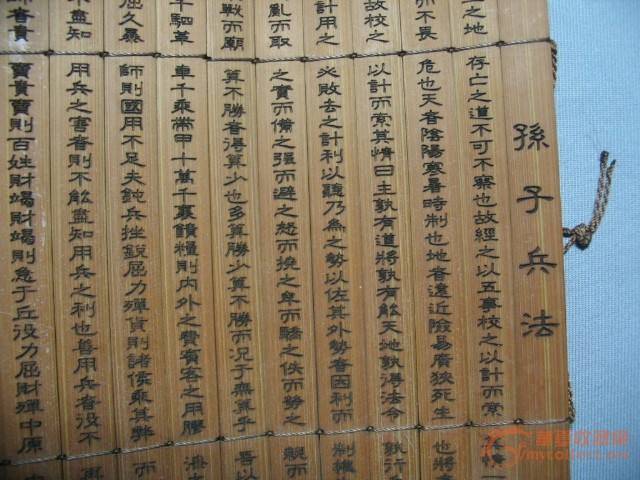 孫子兵法
之地存亡之道不可不察也故經之以五事校之以計而索其情一
而不畏危也天者陰陽寒暑時制也地者遠近險易廣狹死生也將
故校之以計而索其情曰主孰有道將孰有能天地孰得法令孰行
計用之必敗去之計利以聽乃為之勢以佐其外勢者因利而制權
亂而取之實而備之強而避之怒而撓之卑而驕之佚而勞之親而
戰而廟算不勝者得算少也多算勝少算不勝而況于無算乎吾以
千駟革車千乘帶甲十萬千裏饋糧則內外之費賓客之用膠漆
屈久暴師則國用不足夫鈍兵挫銳屈力殫貨則諸侯乘其弊而
不盡知用兵之害者則不能盡知用兵之利也善用兵者役不再
師者貴賣貴賣則百姓財竭財竭則急于丘役力屈財殫中原